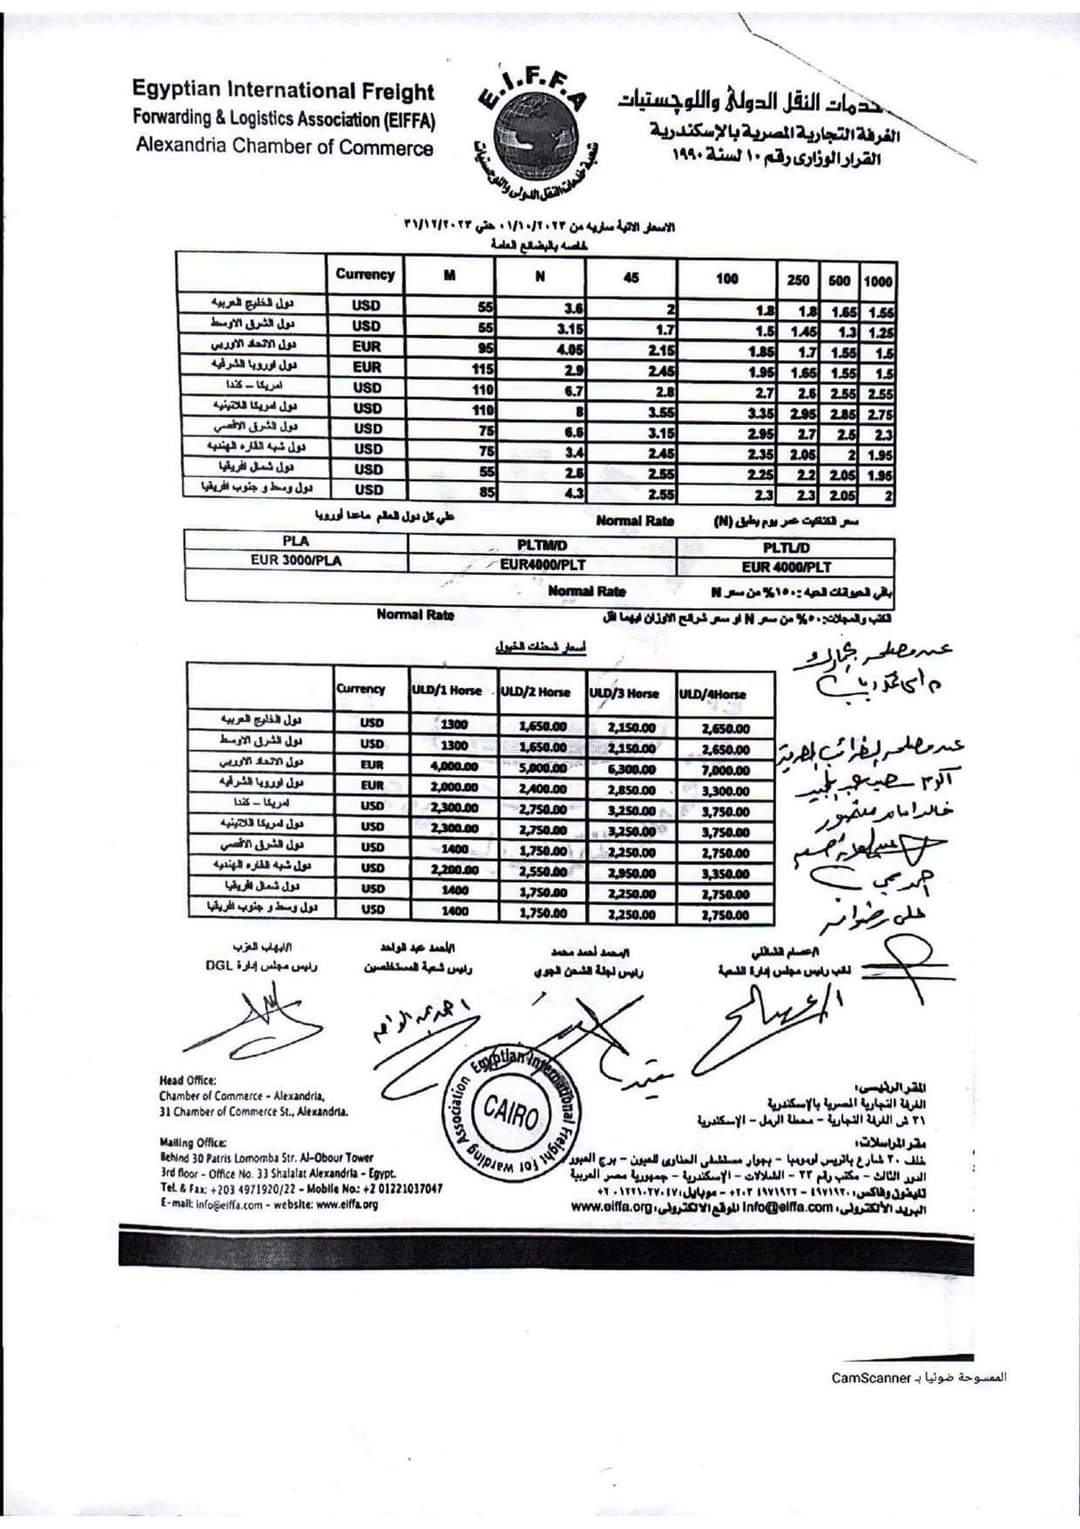 Egyptian International Freight
Forwarding & Logistics Association (EIFFA)
Alexandria Chamber of Commerce
E.I.F.F.A
شعبة خدمات النقل الدولى واللوجستيات
خدمات النقل الدولى واللوجستيات
الغرفة التجارية المصرية بالإسكندرية
القرار الوزارى رقم ١٠ لسنة ١٩٩٠
الاسعار الاتية ساريه من ٠١/١٠/٢٠٢٣ حتي ٣١/١٢/٢٠٢٣
خاصه بالبضائع العامة
Currency M N 45 100 250 500 1000
دول الخليج العربيه USD 55 3.6 2 1.8 1.8 1.65 1.55
دول الشرق الاوسط USD 55 3.15 1.7 1.5 1.45 1.3 1.25
دول الاتحاد الاوربي EUR 95 4.05 2.15 1.85 1.7 1.55 1.5
دول اوروبا الشرقيه EUR 115 2.9 2.45 1.95 1.65 1.55 1.5
امريكا – كندا USD 110 6.7 2.8 2.7 2.6 2.55 2.55
دول امريكا اللاتينيه USD 110 8 3.55 3.35 2.95 2.85 2.75
دول الشرق الاقصي USD 75 6.6 3.15 2.95 2.7 2.5 2.3
دول شبه القاره الهنديه USD 75 3.4 2.45 2.35 2.05 2 1.95
دول شمال افريقيا USD 55 2.6 2.55 2.25 2.2 2.05 1.95
دول وسط و جنوب افريقيا USD 85 4.3 2.55 2.3 2.3 2.05 2
سعر الكتاكيت عمر يوم يطبق (N) Normal Rate علي كل دول العالم ماعدا أوروبا
PLA PLTM/D PLTL/D
EUR 3000/PLA EUR4000/PLT EUR 4000/PLT
باقي الحيوانات الحيه :١٥٠% من سعر N Normal Rate
الكتب والمجلات:٥٠% من سعر N او سعر شرائح الاوزان ايهما اقل Normal Rate
أسعار شحنات الخيول
Currency ULD/1 Horse ULD/2 Horse ULD/3 Horse ULD/4Horse
دول الخليج العربيه USD 1300 1,650.00 2,150.00 2,650.00
دول الشرق الاوسط USD 1300 1,650.00 2,150.00 2,650.00
دول الاتحاد الاوربي EUR 4,000.00 5,000.00 6,300.00 7,000.00
دول اوروبا الشرقيه EUR 2,000.00 2,400.00 2,850.00 3,300.00
امريكا – كندا USD 2,300.00 2,750.00 3,250.00 3,750.00
دول امريكا اللاتينيه USD 2,300.00 2,750.00 3,250.00 3,750.00
دول الشرق الاقصي USD 1400 1,750.00 2,250.00 2,750.00
دول شبه القاره الهنديه USD 2,200.00 2,550.00 2,950.00 3,350.00
دول شمال افريقيا USD 1400 1,750.00 2,250.00 2,750.00
دول وسط و جنوب افريقيا USD 1400 1,750.00 2,250.00 2,750.00
عن مصلحه
عن مصلحه الضرائب المصرية
خالد امام منصور
على رضوان
ا/عصام الشاذلي
نائب رئيس مجلس إدارة الشعبة
ا/محمد أحمد محمد
رئيس لجنة الشحن الجوي
ا/أحمد عبد الواحد
رئيس شعبة المستخلصين
ا/ايهاب العزب
رئيس مجلس إدارة DGL
احمد عبد الواحد
Egyptian International Freight Forwarding Association
CAIRO
Head Office:
Chamber of Commerce - Alexandria,
31 Chamber of Commerce St., Alexandria.
Mailing Office:
Behind 30 Patris Lomomba Str. Al-Obour Tower
3rd floor - Office No. 33 Shalalat Alexandria - Egypt.
Tel. & Fax: +203 4971920/22 - Mobile No.: +2 01221037047
E-mail: info@eiffa.com - website: www.eiffa.org
المقر الرئيسى:
الغرفة التجارية المصرية بالإسكندرية
٣١ ش الغرفة التجارية - محطة الرمل - الإسكندرية
مقر المراسلات:
خلف ٣٠ شارع باتريس لومومبا - بجوار مستشفى الحناوى للعيون - برج العبور
الدور الثالث - مكتب رقم ٣٣ - الشلالات - الإسكندرية - جمهورية مصر العربية
تليفون وفاكس: ٤٩٧١٩٢٠ - ٤٩٧١٩٢٢ ٢٠٣+ - موبايل: ٠١٢٢١٠٣٧٠٤٧ ٢+
البريد الألكترونى: info@eiffa.com الموقع الالكترونى: www.eiffa.org
الممسوحة ضوئيا بـ CamScanner